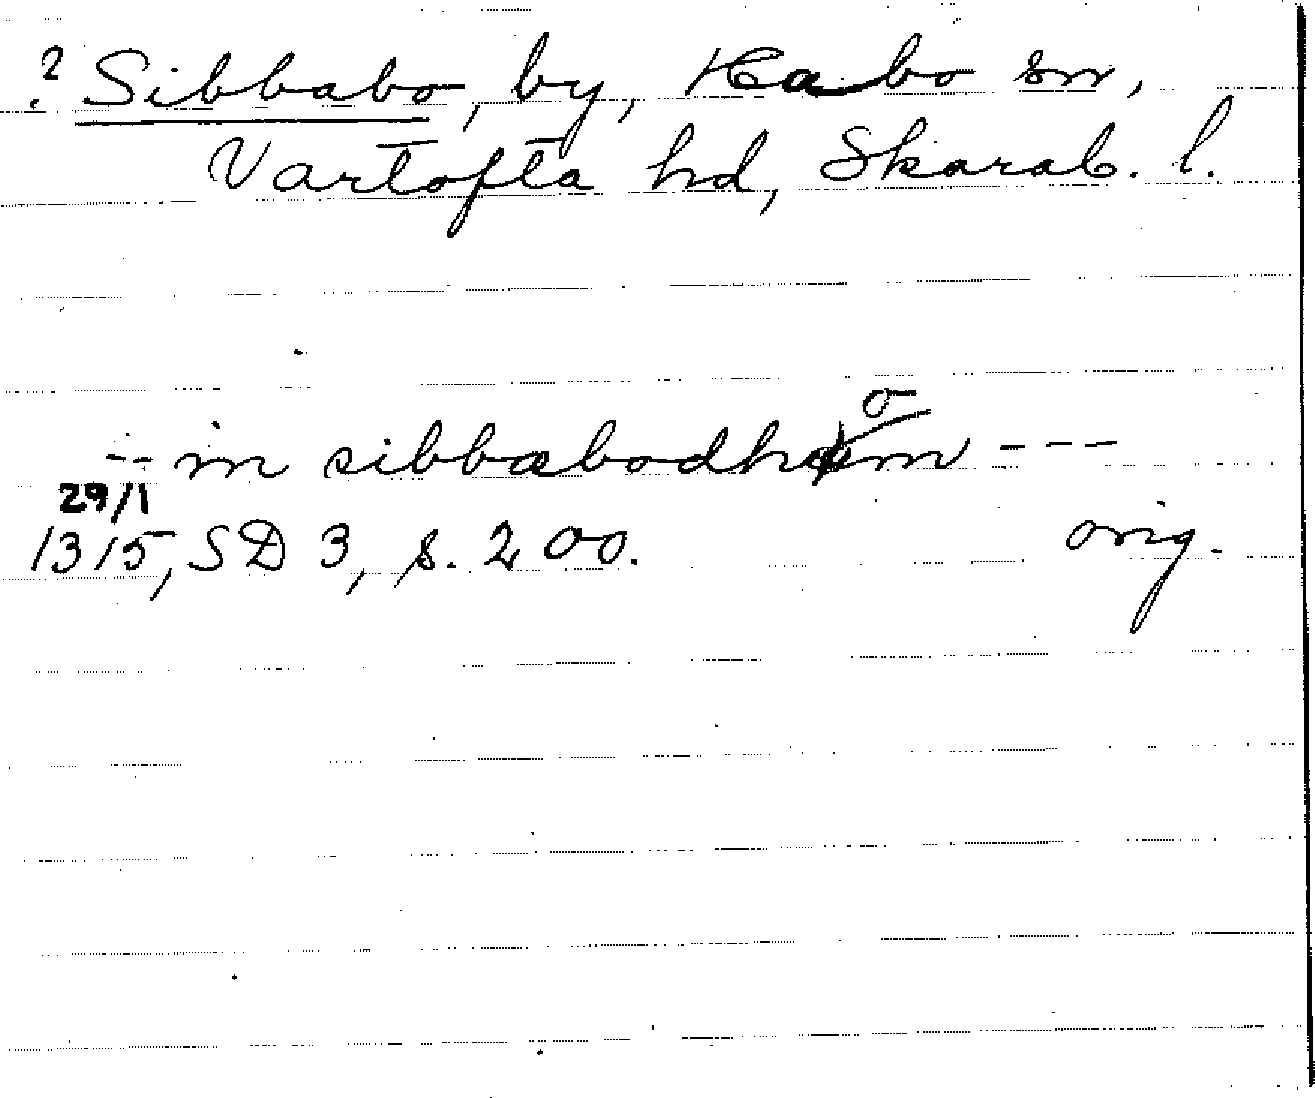 ? Sibbabo, by, Habo sn,
Vartofta hd, Skarab. l.
-- in sibbabodhom ---
29/1
1315, SD 3, s. 200. orig.